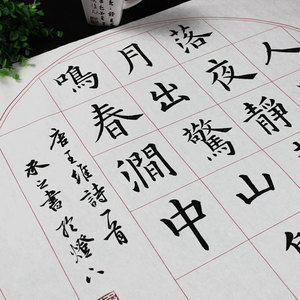 人
落夜靜
月出驚山
鳴春澗中
唐王維詩一首
之書於燈下